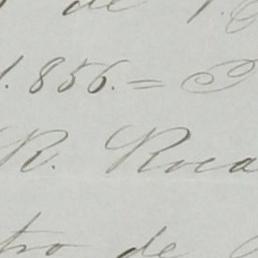 de
1.856.=
R. Roca
tro de